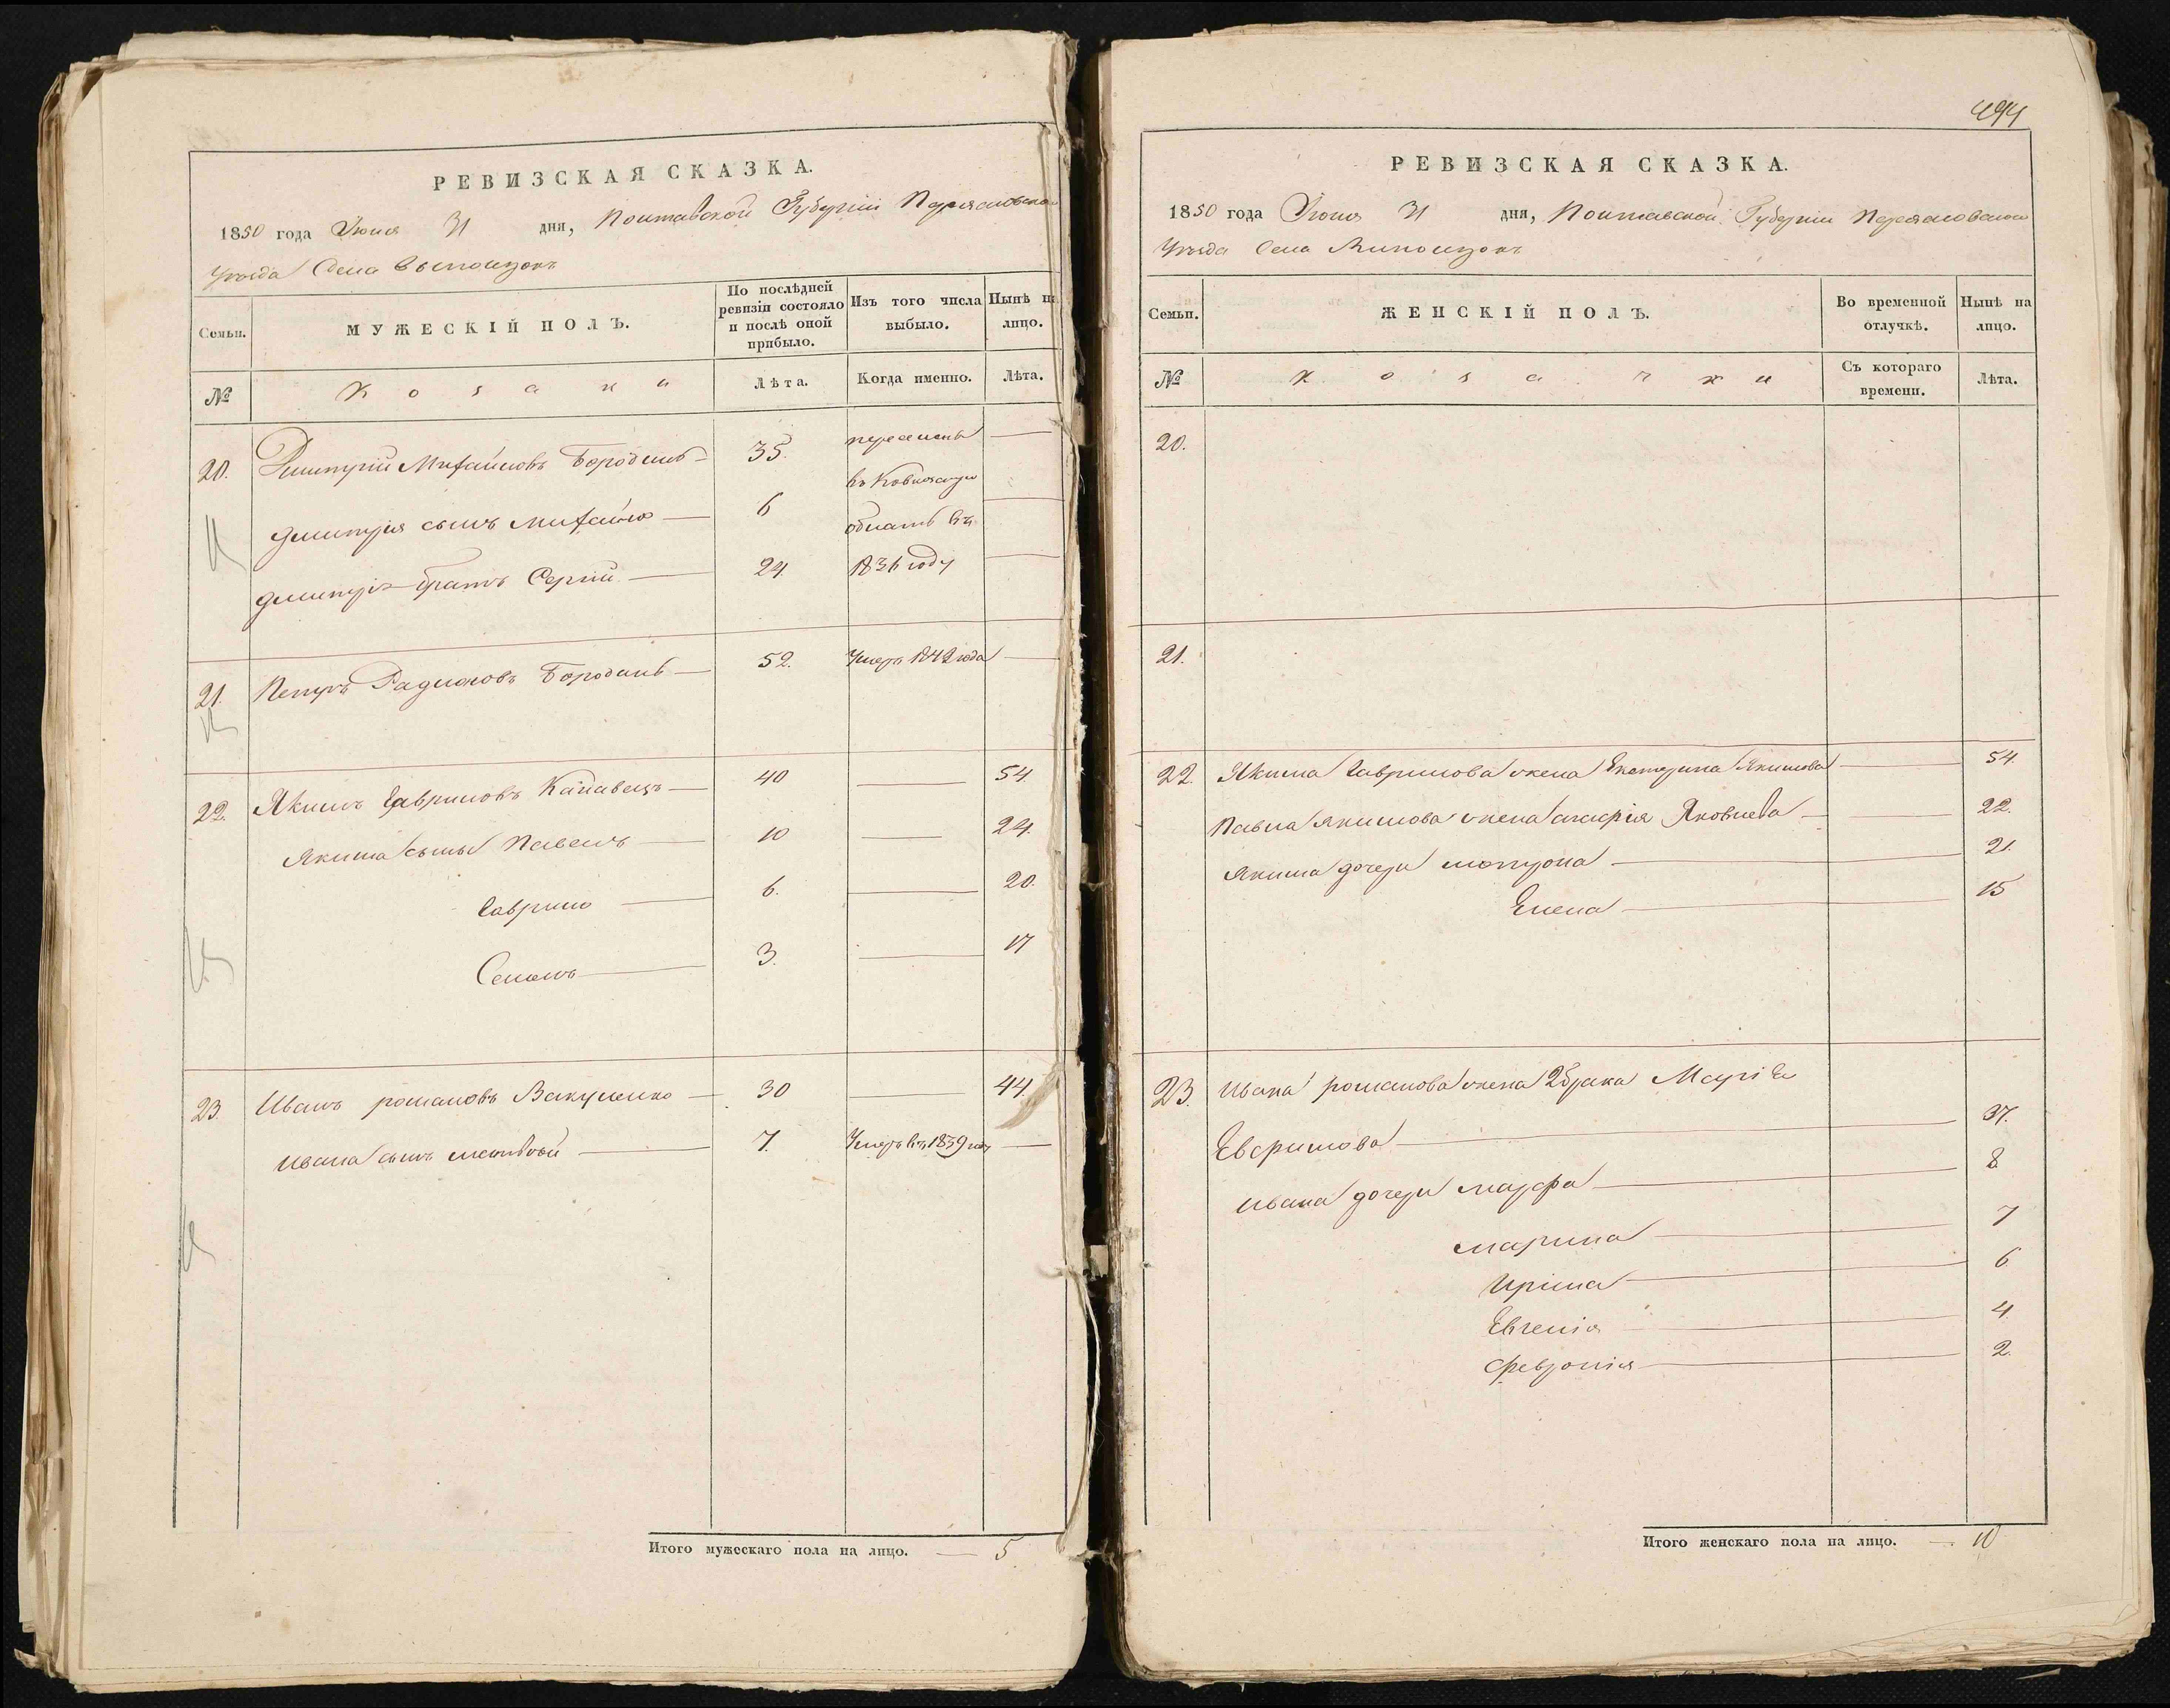 РЕВИЗСКАЯ СКАЗКА.
1850 года Июня 31 дня, Полтавской Губерніи Переясловскаго
Уѣзда Села Выползокъ
Семьи. МУЖЕСКІЙ ПОЛЪ. По послѣдней ревизіи состояло и послѣ оной прибыло. Изъ того числа выбыло. Нынѣ на лицо.
№ Козаки Лѣта. Когда именно. Лѣта.
20. Дмитрій Михайловъ Бородань 35. переселены —
Дмитрія сынъ Михайло 6 въ Кавказскую
область въ —
Дмитрія братъ Сергій 24. 1836 году —
21. Петръ Радионовъ Бородань 52. Умеръ 1842 года —
22. Якимъ Гавриловъ Канавецъ 40 — 54.
Якима сыны Павелъ 10 — 24.
Гаврило 6. — 20.
Семенъ 3. — 17
23. Иванъ романовъ Вакуленко 30 — 44.
Ивана сынъ меѳодій 7. Умеръ въ 1839 году —
Итого мужескаго пола на лицо. — 5.
494
РЕВИЗСКАЯ СКАЗКА.
1850 года Июня 31 дня, Полтавской Губерніи Переясловскаго
Уѣзда Села Виползокъ
Семьи. ЖЕНСКІЙ ПОЛЪ. Во временной отлучкѣ. Нынѣ на лицо.
№ Козачки Съ котораго времени. Лѣта.
20.
21.
22. Якима Гаврилова жена Екатерина Якимова — 54.
Павла Якимова жена Агафія Яковлева — 22.
Якима дочери мотрона — 21.
Елена — 15
23. Ивана романова жена 2 брака Марія
Ефримова — 37.
Ивана дочери марфа — 8.
марина — 7
Иріна — 6
Евгенія — 4.
Февронія — 2.
Итого женскаго пола на лицо. — 10